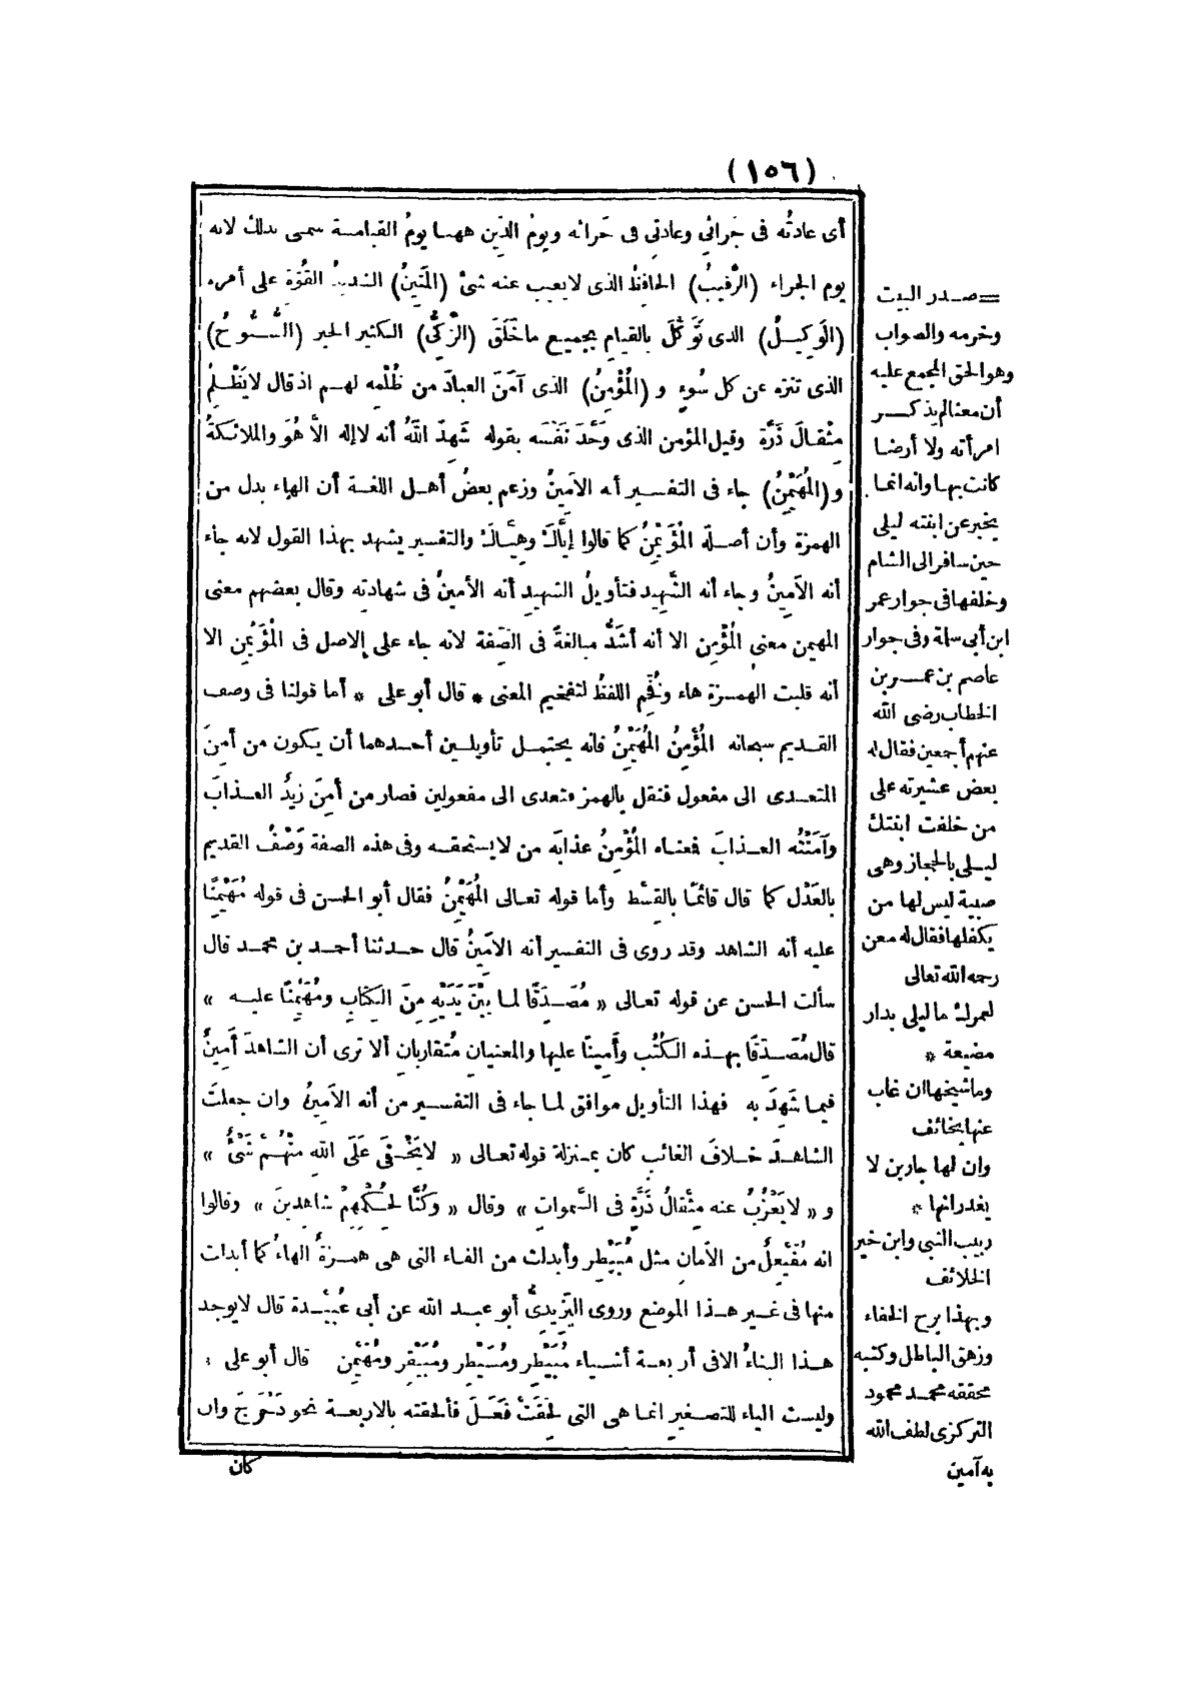 (١٥٦)
أى عادتُه فى جَزائى وعادتى فى جَزائه ويومُ الدِّين ههنا يومُ القيامـة سمى بذلك لانه
يوم الجزاء (الرَّقيبُ) الحافظُ الذى لايغيب عنه شئ (المَتِينُ) الشديدُ القُوَّة على أمره
(الوَكِيـلُ) الذى تَوَكَّلَ بالقيام بجميـع ماخَلَقَ (الزَّكِىُّ) الكثير الخير (السُّبُّوحُ)
الذى تنزه عن كل سُوءٍ و (المُؤْمِنُ) الذى آمَنَ العبادَ من ظُلْمه لهـم اذ قال لايَظْلِمُ
مِثْقالَ ذَرَّة وقيل المؤمن الذى وَحَّدَ نَفْسَه بقوله شَهِدَ اللهُ أنه لاإله الاَّ هُوَ والملائكةُ
و (المُهَيْمِنُ) جاء فى التفسـير أنه الاَمينُ وزعم بعضُ أهـل اللغـة أن الهاء بدل من
الهمزة وأن أصـلَه المُؤَيْمِنُ كما قالوا إيَّاكَ وهِيَّاكَ والتفسير يشهد بهذا القول لانه جاء
أنه الاَمينُ وجاء أنه الشَّهِيد فتأويلُ الشهيد أنه الأمينُ فى شهادته وقال بعضهم معنى
المهيمن معنى المُؤْمِن الا أنه أشَدُّ مبالغةً فى الصِّفة لانه جاء على الاصل فى المُؤَيْمِن الا
أنه قلبت الهمـزة هاء وفُخِّم اللفظُ لتفخيم المعنى * قال أبو على * أما قولنا فى وصف
القـديم سبحانه المُؤْمِنُ المُهَيْمِنُ فانه يحتمـل تأويلـين أحـدهما أن يكون من أَمِنَ
المتعـدى الى مفعول فنقل بالهمز فتعدى الى مفعولين فصار من أَمِنَ زيدٌ العـذابَ
وآمَنْتُه العـذابَ فمعنـاه المُؤْمِنُ عذابَه من لايستحقـه وفى هذه الصفة وَصْفُ القديم
بالعَدْل كما قال قائمًـا بالقِسْط وأما قوله تعالى المُهَيْمِنُ فقال أبو الحسن فى قوله مُهَيْمِنًا
عليه أنه الشاهد وقد روى فى التفسير أنه الاَمينُ قال حـدثنا أحمـد بن محمـد قال
سألت الحسن عن قوله تعـالى « مُصَـدِّقًا لما بَيْنَ يَدَيْهِ مِنَ الكتابِ ومُهَيْمِنًا عليـه »
قال مُصَـدِّقًا بهـذه الكُتُب وأمينًا عليها والمعنيان مُتقاربانِ ألا ترى أن الشاهدَ أمينٌ
فيما شَهِدَ به فهذا التأويل موافق لما جاء فى التفسـير من أنه الاَمينُ وان جعلتَ
الشاهدَ خـلافَ الغائب كان بمـنزلة قوله تعـالى « لايَخْفَى عَلَى اللهِ مِنْهُـمْ شَىْءٌ »
و « لايَعْزُبُ عنه مِثْقالُ ذَرَّةٍ فى السَّمواتِ » وقال « وكُنَّا لحُكْمِهِمْ شاهِدِينَ » وقالوا
انه مُفَيْعِلٌ من الاَمانِ مثل مُبَيْطِر وأبدلت من الفـاء التى هى همـزةٌ الهاءُ كما أبدلت
منها فى غـير هـذا الموضع وروى اليَزِيدىُّ أبو عبـد الله عن أبى عُبَيْـدة قال لايوجد
هـذا البناءُ الا فى أربعـة أشـياء مُبَيْطِر ومُسَيْطِر ومُبَيْقِر ومُهَيْمِن قال أبو على :
وليست الياء للتصغير انما هى التى لحِقَتْ فَعَـلَ فألحقته بالاربعـة نحو دَحْرَجَ وان
كان
=صـدر البيت
وخرمه والصواب
وهوالحق المجمع عليه
أن معنالم يذكـر
امرأته ولا أرضـا
كانت بهـا وانه انمـا
يخبرعن ابنته ليلى
حين سافرالى الشام
وخلفهافى جوارعمر
ابن أبى سلمة وفى جوار
عاصم بن عمـر بن
الخطاب رضى الله
عنهم أجمعين فقال له
بعض عشيرته على
من خلفت ابنتك
ليـلى بالحجاز وهى
صبية ليس لها من
يكفلهافقال له معن
رحمه الله تعالى
لعمرك ما ليلى بدار
مضيعة *
وماشيخهاان غاب
عنها بخائف
وان لها جارين لا
يغدرانها *
ربيب النبى وابن خير
الخلائف
وبهذا برح الخفاء
وزهق الباطل وكتبه
محققه محمـد محمود
التركزى لطف الله
به آمين